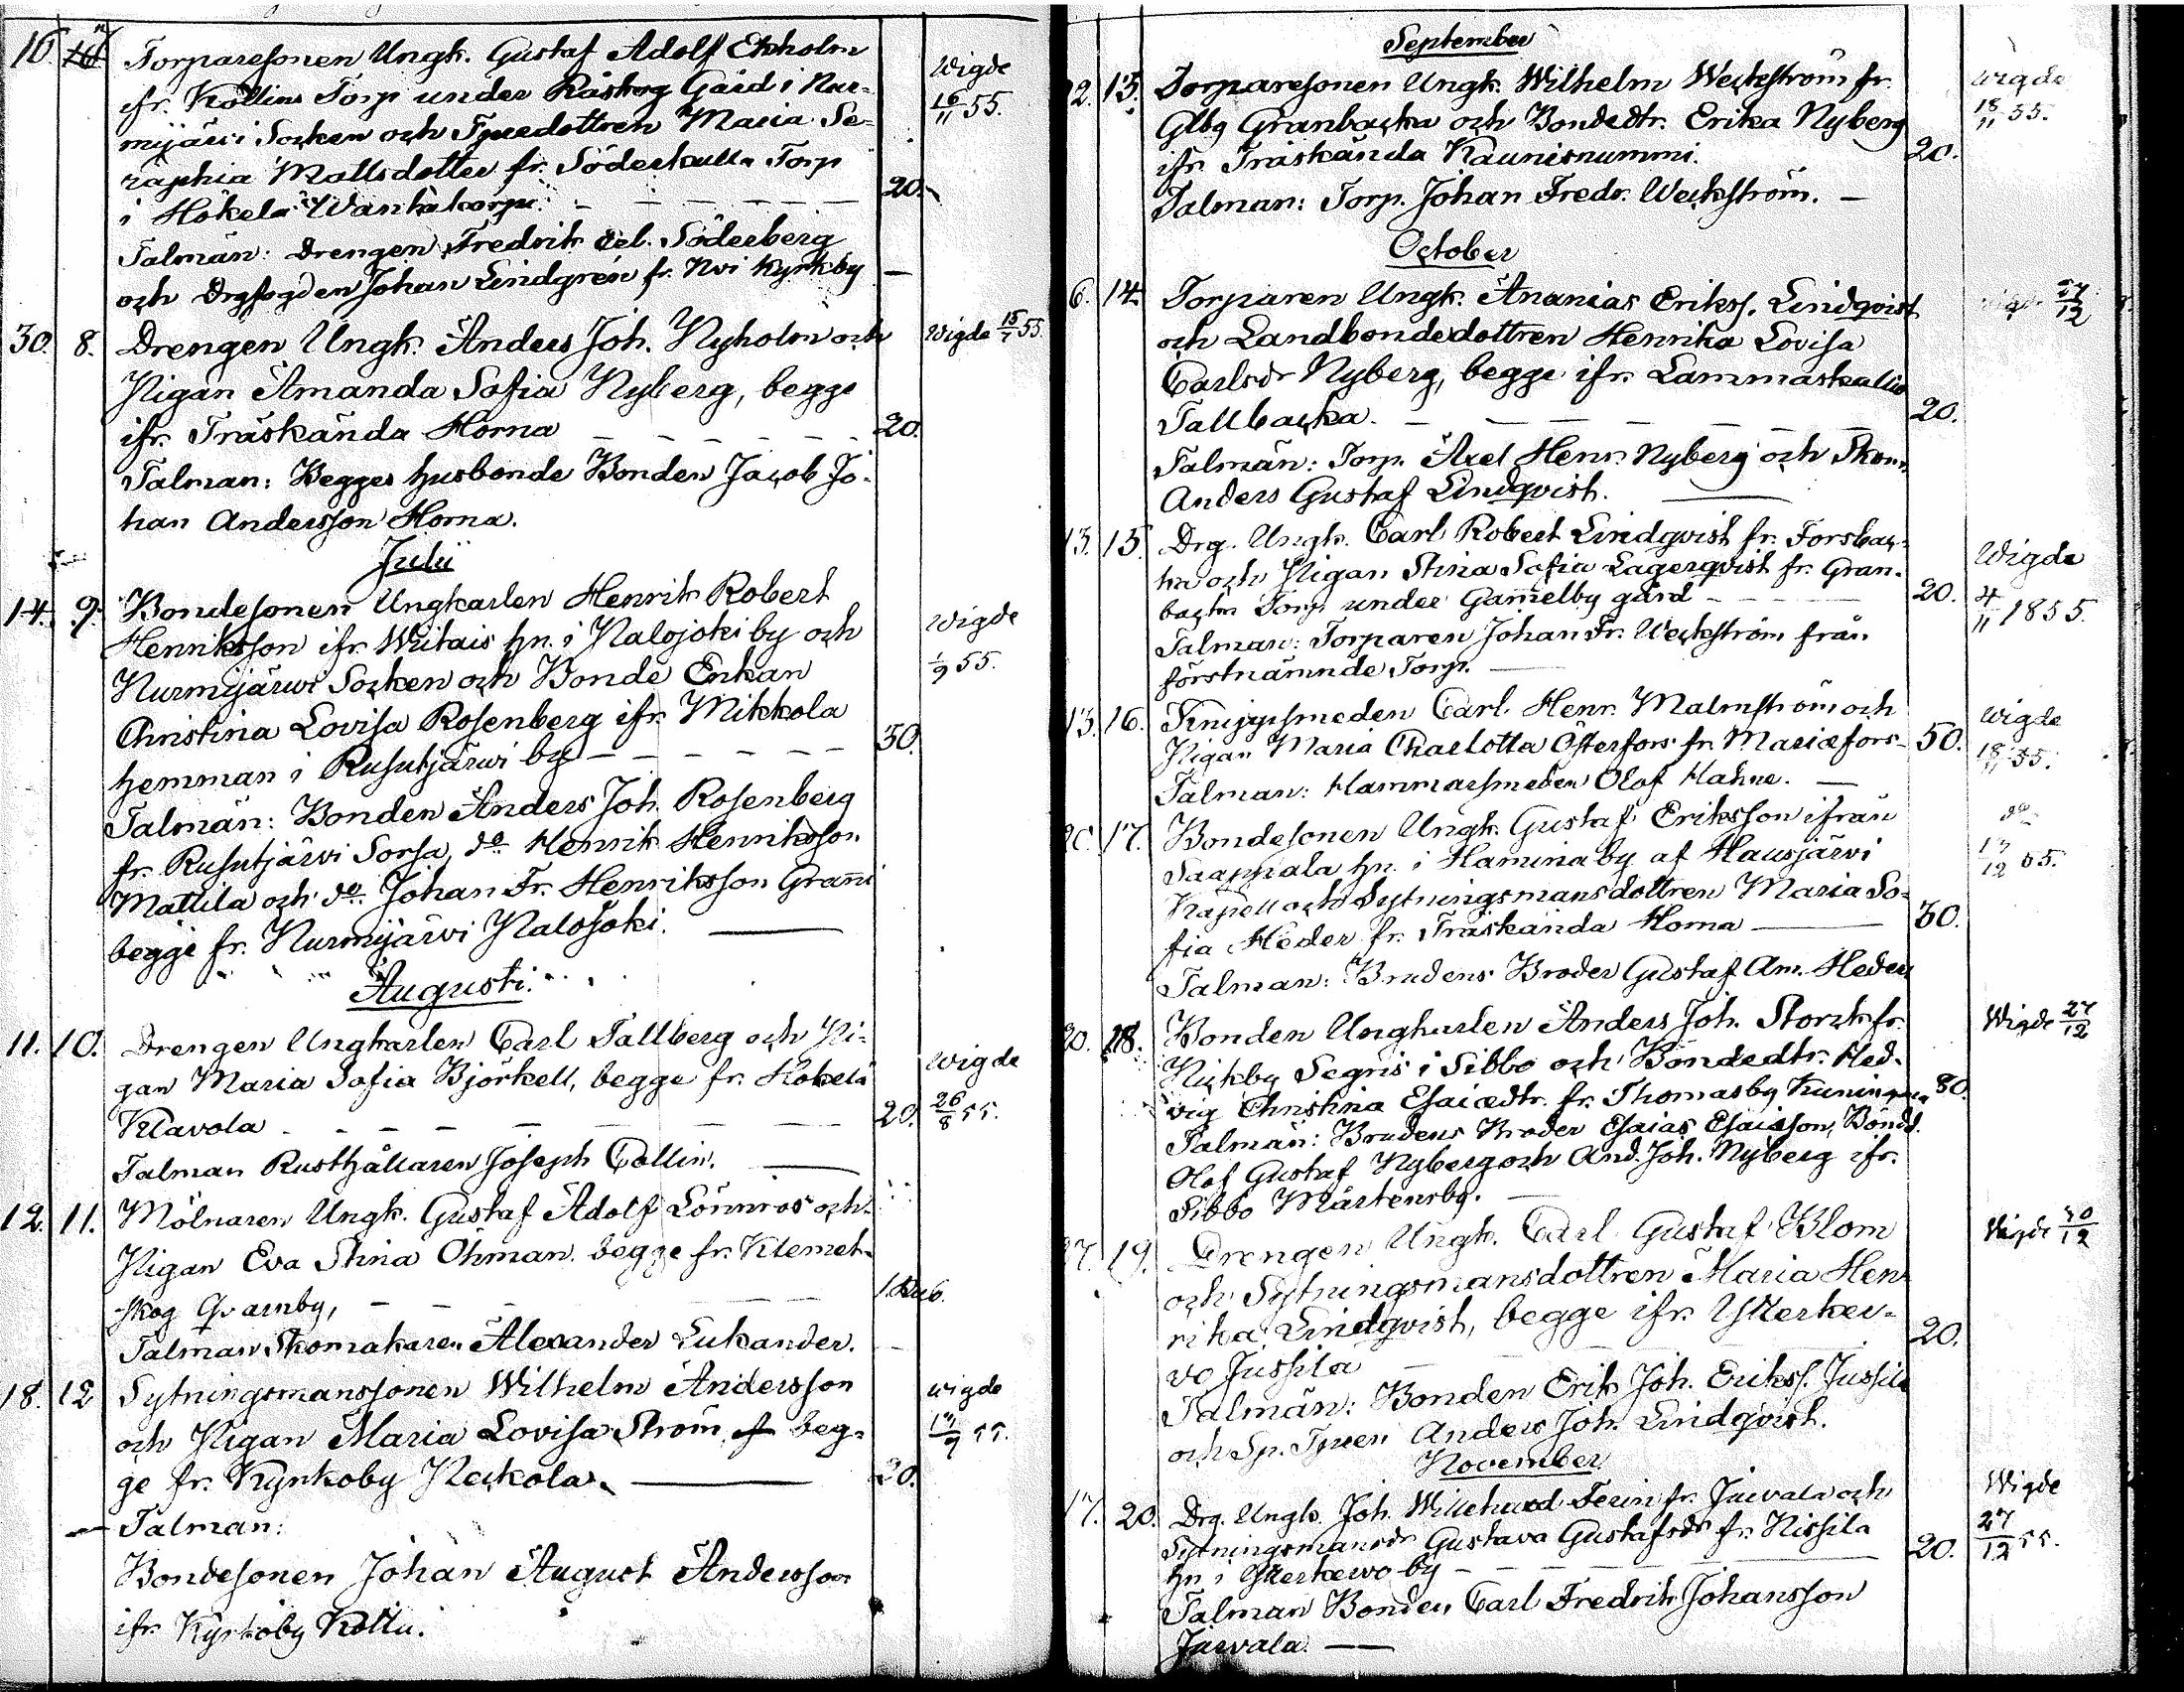 16. 7. Torparesonen Ungk. Gustaf Adolf Ekholm Wigde
ifr. Kollins Torp under Råskog Gård i Nur- 16/11 55.
mijärvi Socken och Tjuedottren Maria Se-
raphia Mattsdotter fr. Söderkulla Torp
i Hökelä Wanhakorpi. — — — — — — 20.
Talmän: Drengen Fredrik Söderberg
och Drgfogden Johan Lindgrén fr. Kyrkby —
30. 8. Drengen Ungk. Anders Joh. Nyholm och Wigde 15/7 55.
Pigan Amanda Sofia Nyberg, begge
ifr. Träskända Horna — — — — — — 20.
Talman: Begges husbonde Bonden Jacob Jo-
han Andersson Horna.
Julii
14. 9. Bondesonen Ungkarlen Henrik Robert
Henriksson ifr. hn. i Palojoki by och Wigde
Nurmijärvi Socken och Bonde Enkan 1/9 55.
Christina Lovisa Rosenberg ifr. Mikkola
hemman i Rusutjärvi by — — — — — — 30.
Talmän: Bonden Anders Joh. Rosenberg
fr. Rusutjärvi Sorsa, do Henrik Henriksson
Mattila och do. Johan Fr. Henriksson
begge fr. Nurmijärvi Palojoki. —
Augusti.
11. 10. Drengen Ungkarlen Carl Tallberg och Pi-
gan Maria Sofia Björkell, begge fr. Hökelä Wigde
Klavola — — — — — — — — 20. 26/8 55.
Talman Rusthållaren Joseph Collin. —
12. 11. Mölnaren Ungk. Gustaf Adolf Lönnros och
Pigan Eva Stina Öhman begge fr. Klemet-
skog Qvarnby, — — — — 1.Rub.
Talman Skomakaren Alexander Lukander.
18. 12 Sytningsmanssonen Wilhelm Andersson wigde
och Pigan Maria Lovisa Ström beg- /9 55.
ge fr. Kyrkoby Pekkola. — 20.
— Talman:
Bondesonen Johan August Andersson
ifr. Kyrkoby
September
13. Torparesonen Ungk. Wilhelm Weckström fr. wigde
Glbg Granbacka och Bondedtr. Erika Nyberg 18/11 55.
ifr. Träskända Kaunisnummi. 20.
Talman: Torp. Johan Fredr. Weckström. —
October
6. 14. Torparen Ungk. Ananias Erikss. Lindqvist 27/12
och Landbondedottren Henrika Lovisa
Carlsdr Nyberg, begge ifr. Lammaskallio
Tallbacka. — — — — — — 20.
Talmän: Torp. Axel Henr. Nyberg och Skom.
Anders Gustaf Lindqvist. —
13. 15. Drg. Ungk. Carl Robert Lindqvist fr. Forsbac-
ka och Pigan Stina Sofia Lagerqvist fr. Gran- Wigde
backa Torp under Gammelby gård — — — 20. 4/11 1855.
Talman: Torparen Johan Fr. Weckström från
förstnämnde Torp. —
13. 16. Knippsmeden Carl Henr. Malmström och wigde
Pigan Maria Charlotta Österfors fr. Mariæfors- 50. 18/11 55.
Talman: Hammarsmeden Olof Hahne. —
17. Bondesonen Ungk. Gustaf Eriksson ifrån do
Saappala hn. i Hamina by af Hausjärvi /12 55.
Kapell och Sytningsmansdottren Maria So-
fia Heder fr. Träskända Horna — 30.
Talman: Brudens Broder Gustaf Am. Heder
20. 18. Bonden Ungkarlen Anders Joh. Storck fr. Wigde 27/12
Nickby Segris i Sibbo och Bondedtr. Hed-
vig Christina Esaiædtr. fr. Thomasby 80.
Talmän: Brudens Broder Esaias Esaiasson, Bond.
Olof Gustaf Nyberg och And. Joh. Nyberg ifr.
Sibbo Mårtensby. —
27. 19. Drengen Ungk. Carl Gustaf Blom Wigde 30/12
och Sytningsmansdottren Maria Hen-
rika Lindqvist, begge ifr. Ytterker-
vo Jussila — — — 20.
Talmän: Bonden Erik Joh. Erikss. Jussila
och Anders Joh. Lindqvist.
November
17. 20. Drg. Ungk. Joh. Willehard Ferin fr. Jaivala och Wigde
Sytningsmansdr Gustava Gustafsdr fr. Nissila 27/12 55.
hn. i Ytterkervo by — — — 20.
Talman Bonden Carl Fredrik Johansson
Jaivala. —